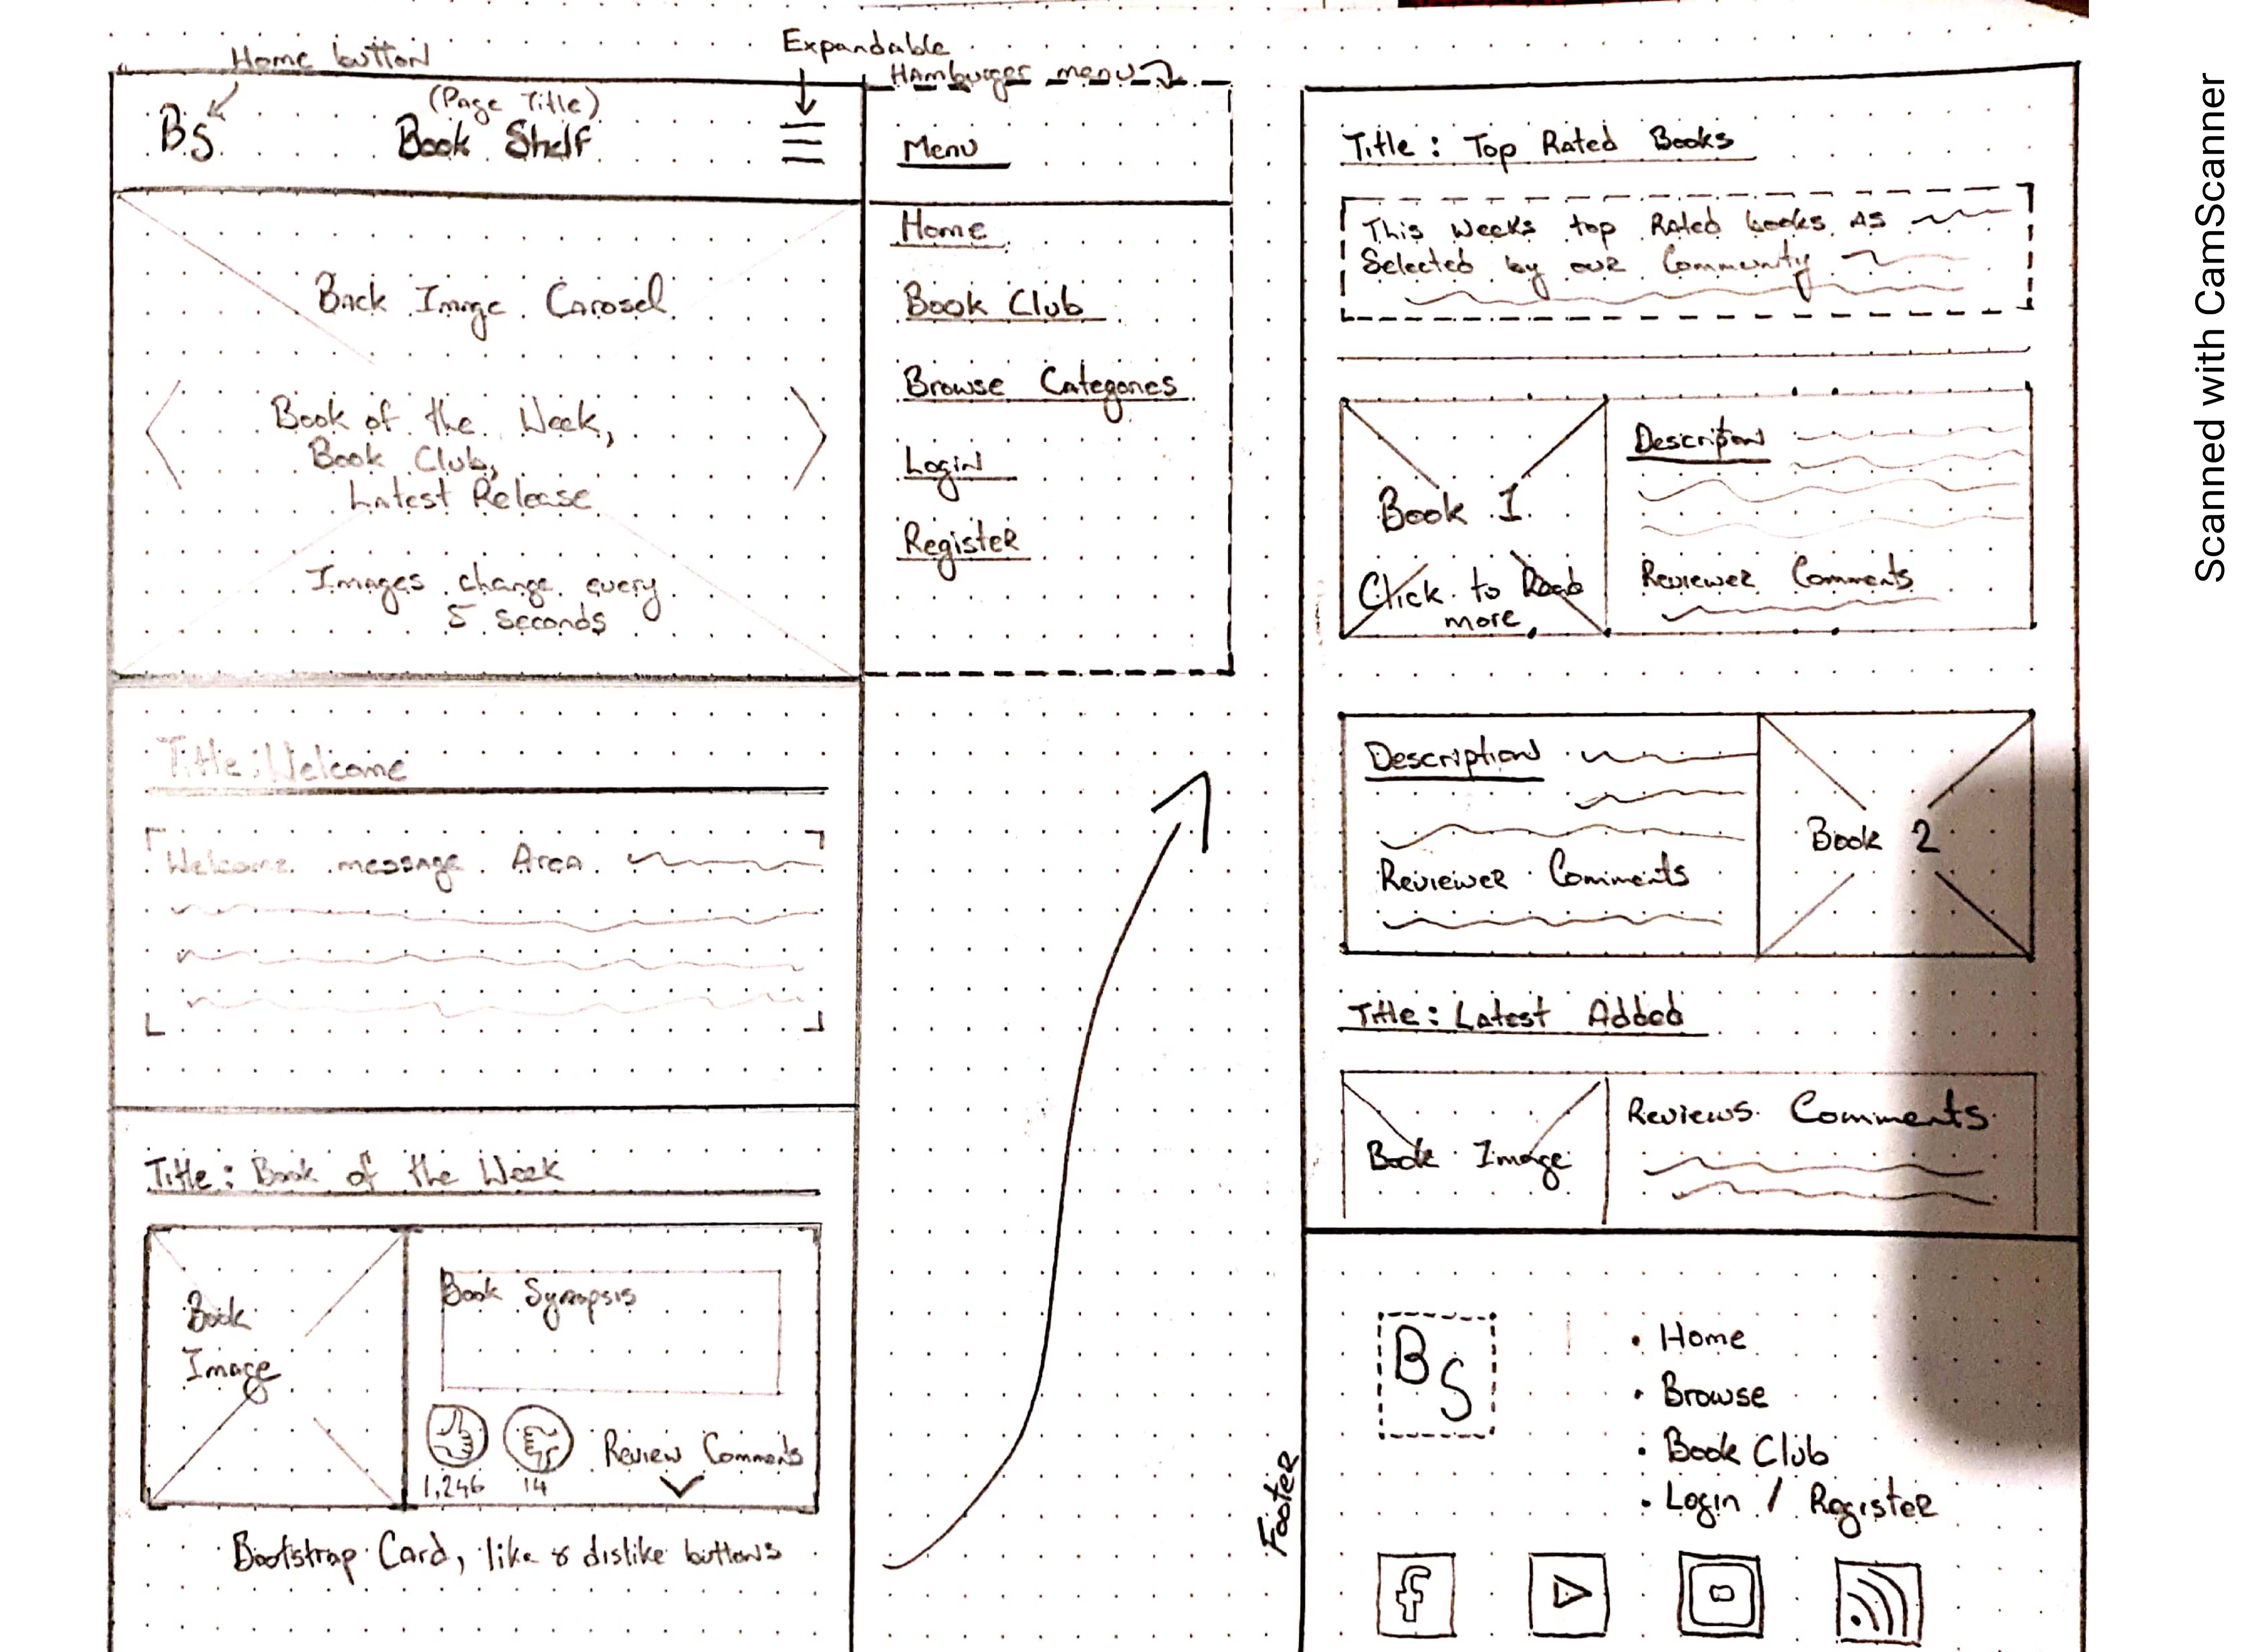 Home button
Expandable
Hamburger menu
BS
(Page Title)
Book Shelf
Back Image Carosel
Book of the Week,
Book Club,
Latest Release
Images change every
5 seconds
Menu
Home
Book Club
Browse Categories
Login
Register
Title: Welcome
Welcome message Area
Title: Book of the Week
Book
Image
Book Synopsis
1,246
14
Review Comments
Bootstrap Card, like & dislike buttons
Title: Top Rated Books
This weeks top Rated books As
Selected by our Community
Book 1
Click to Read
more
Description
Reviewer Comments
Description
Reviewer Comments
Book 2
Title: Latest Added
Book Image
Reviews Comments
Footer
BS
• Home
• Browse
• Book Club
• Login / Register
f
Scanned with CamScanner